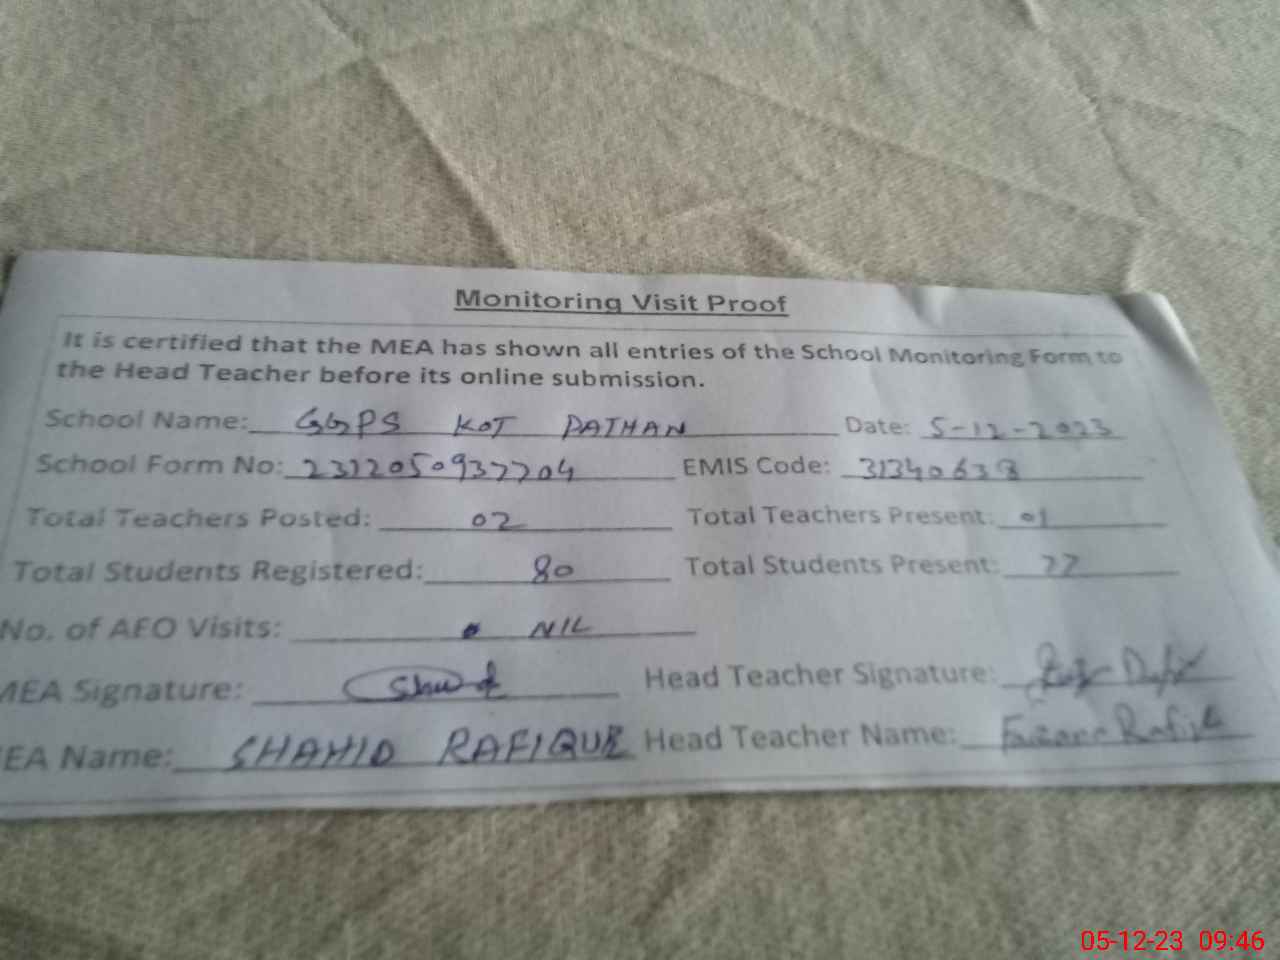 Monitoring Visit Proof
It is certified that the MEA has shown all entries of the School Monitoring Form to
the Head Teacher before its online submission.
School Name: GGPS KOT PATHAN Date: 5-12-2023
School Form No: 2312050937704 EMIS Code: 31340638
Total Teachers Posted: 02 Total Teachers Present: 01
Total Students Registered: 80 Total Students Present: 77
No. of AEO Visits: NIL
MEA Signature: Head Teacher Signature:
EA Name: SHAHID RAFIQUE Head Teacher Name: Rafique
05-12-23 09:46